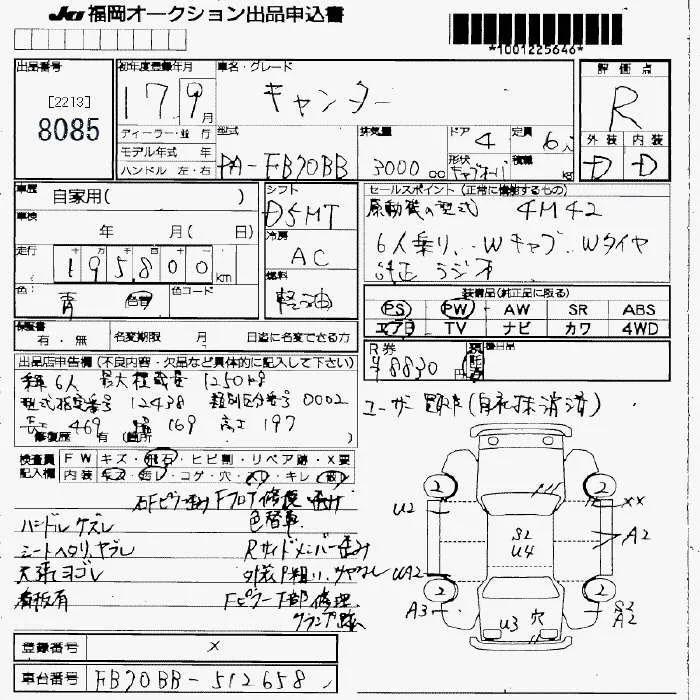 JU 福岡オークション出品申込書
*1001225646*
出品番号
[2213]
8085
初年度登録年月
17 9月
車名・グレード
キャンター
評価点
R
外装 内装
D D
ディーラー・並行
モデル年式 年
ハンドル 左・右
型式
PA-FB70BB
排気量
3000cc
ドア
4
形状
定員
6人
積載
kg
車歴
自家用( )
車検
年 月( 日)
走行
十 万 千 百 十 一
195800km
色:
青
色コード
シフト
D5MT
冷房
AC
燃料
軽油
セールスポイント(正常に機能するもの)
原動機の型式 4M42
6人乗り、Wキャブ、Wタイヤ
純正 ラジオ
装備品(純正品に限る)
PS PW AW SR ABS
エアB TV ナビ カワ 4WD
保証書
有・無
名変期限 月 日迄に名変できる方
R券
¥8830円
出品店申告欄(不良内容・欠品など具体的に記入して下さい)
6人 最大積載量 1250kg
型式指定番号 12438 類別区分番号 0002
長さ 469 幅 169 高さ 197
修復歴 有 (箇所
ユーザー買取車(自社抹消済)
検査員 FW キズ・飛石・ヒビ割・リペア跡・X要
記入欄 内装 キズ・汚レ・コゲ・穴・ハリ・キレ・
ハンドルケズレ
色替車
シートヘタリ、ヤブレ
Rサイドメンバー歪み
天張ヨゴレ
看板有
Fピラー下部修理
クランプ跡
2 2
U2 XX
S2
U4
A2
UA2
2 2
A3 S2
A2
U3 穴
登録番号 X
車台番号 FB70BB-512658